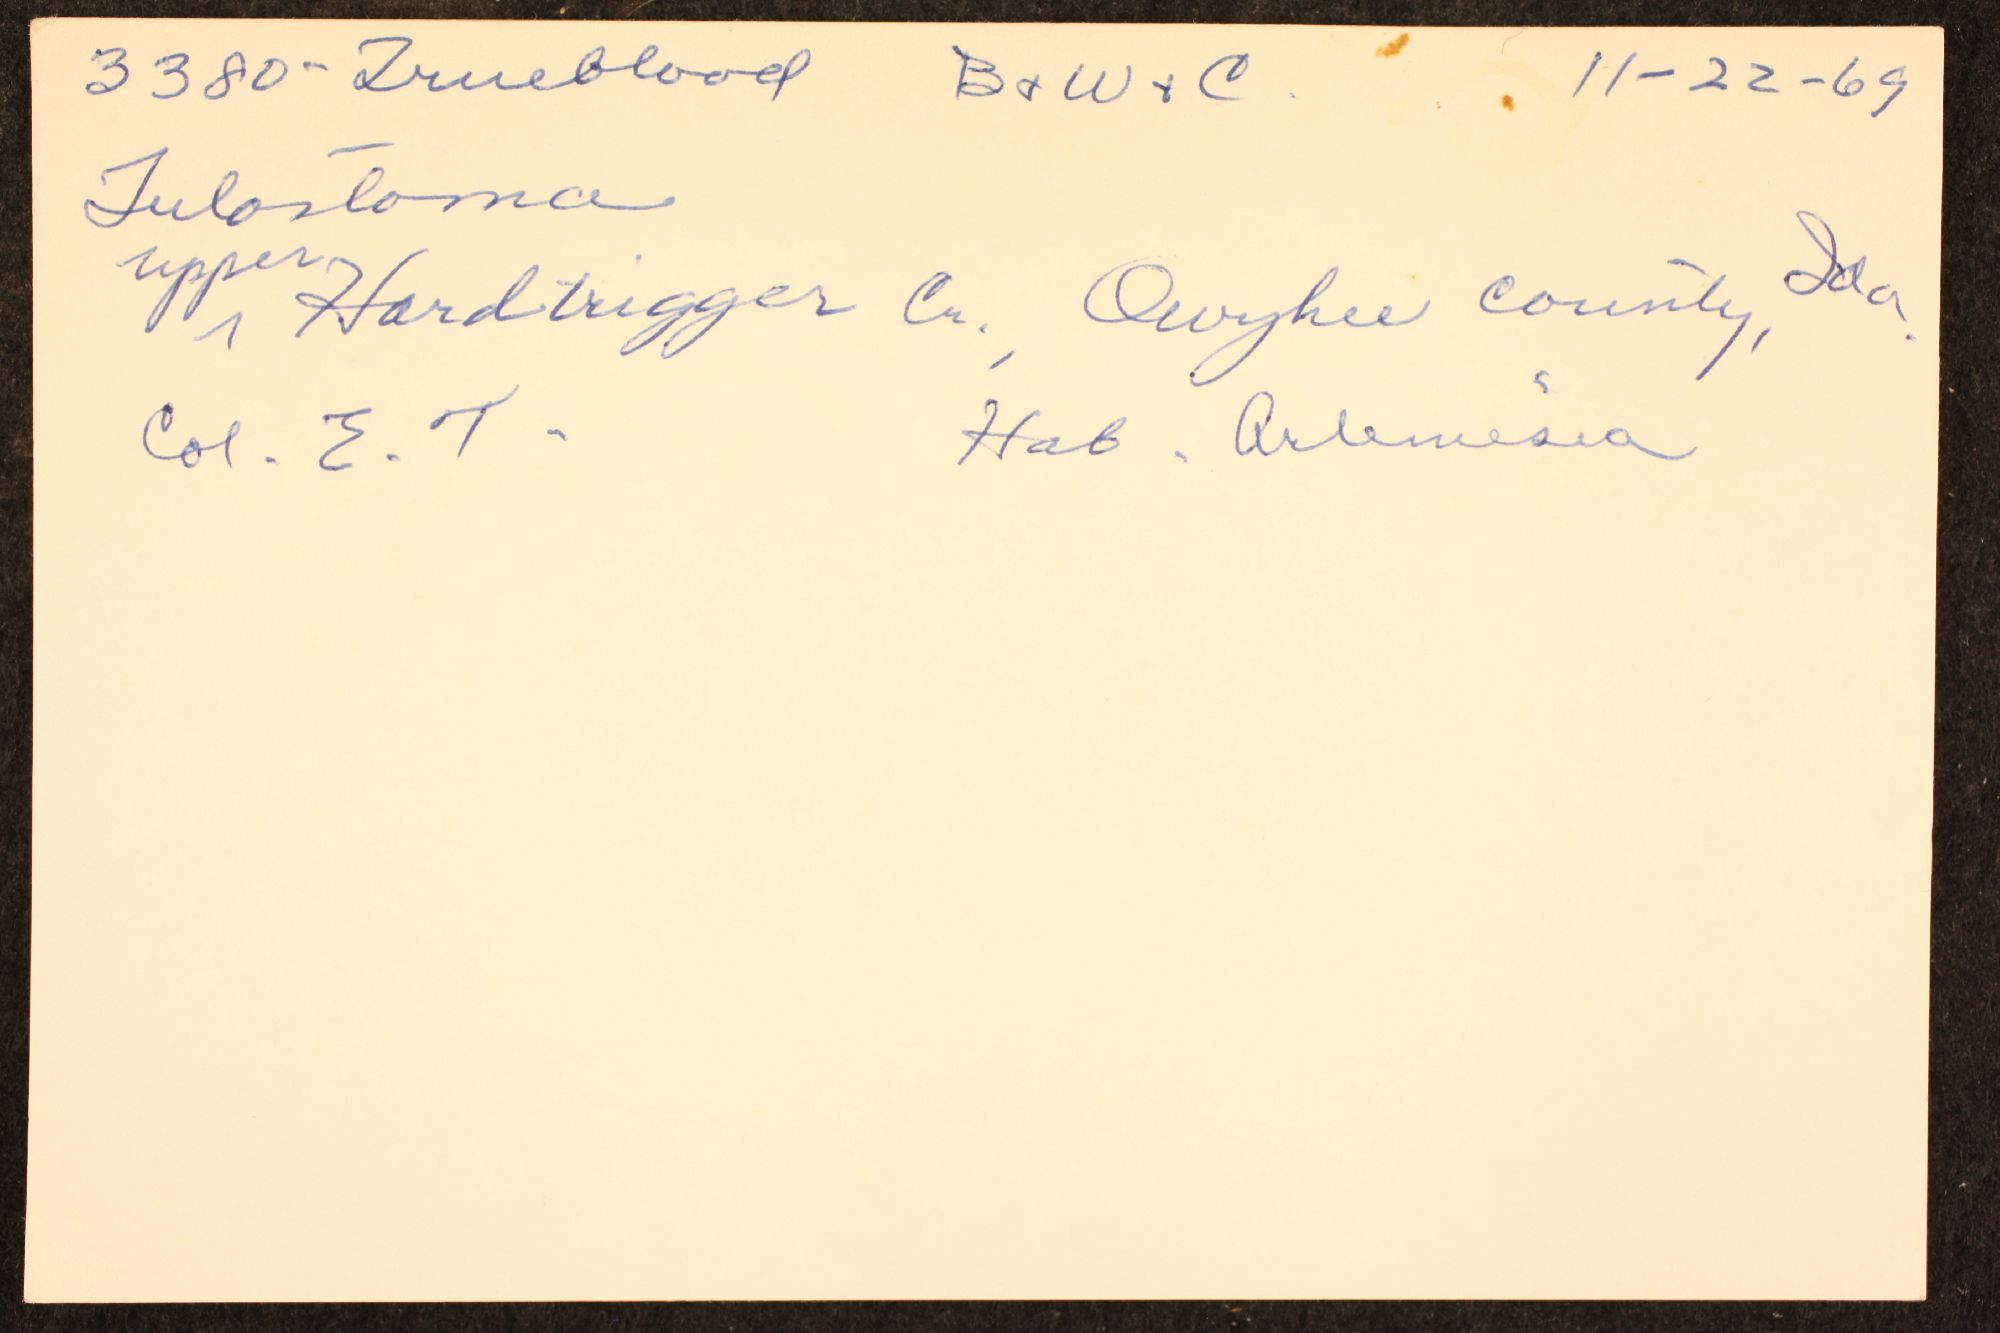 3380- Trueblood B & W & C. 11-22-69
Tulostoma
upper Hardtrigger Cr., Owyhee county, Ida.
Col. E. T. Hab. Artemesia